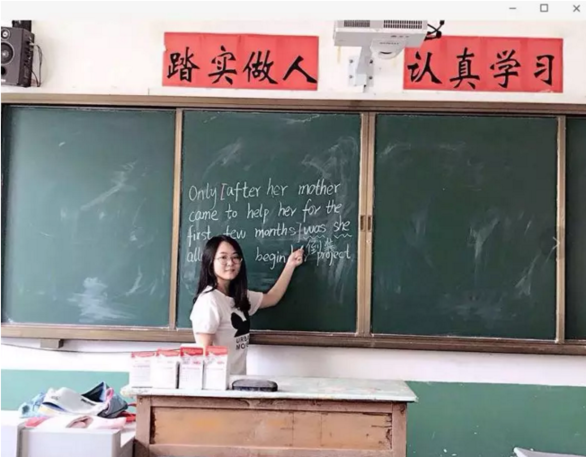 踏实做人
认真学习
Only [after her mother
came to help her for the
first few months] was she
begin project